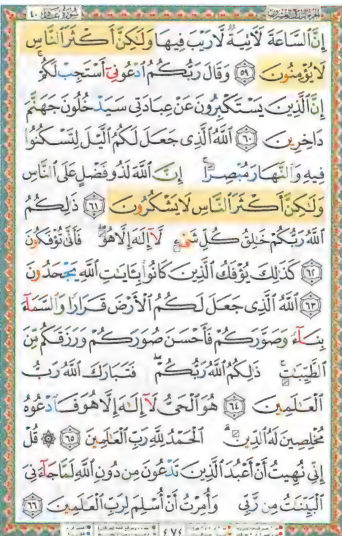 إِنَّ ٱلسَّاعَةَ لَءَاتِيَةٞ لَّا رَيۡبَ فِيهَا وَلَٰكِنَّ أَكۡثَرَ ٱلنَّاسِ
لَا يُؤۡمِنُونَ ٥٩ وَقَالَ رَبُّكُمُ ٱدۡعُونِيٓ أَسۡتَجِبۡ لَكُمۡۚ
إِنَّ ٱلَّذِينَ يَسۡتَكۡبِرُونَ عَنۡ عِبَادَتِي سَيَدۡخُلُونَ جَهَنَّمَ
دَاخِرِينَ ٦٠ ٱللَّهُ ٱلَّذِي جَعَلَ لَكُمُ ٱلَّيۡلَ لِتَسۡكُنُواْ
فِيهِ وَٱلنَّهَارَ مُبۡصِرًاۚ إِنَّ ٱللَّهَ لَذُو فَضۡلٍ عَلَى ٱلنَّاسِ
وَلَٰكِنَّ أَكۡثَرَ ٱلنَّاسِ لَا يَشۡكُرُونَ ٦١ ذَٰلِكُمُ
ٱللَّهُ رَبُّكُمۡ خَٰلِقُ كُلِّ شَيۡءٖ لَّآ إِلَٰهَ إِلَّا هُوَۖ فَأَنَّىٰ تُؤۡفَكُونَ
٦٢ كَذَٰلِكَ يُؤۡفَكُ ٱلَّذِينَ كَانُواْ بِـَٔايَٰتِ ٱللَّهِ يَجۡحَدُونَ
٦٣ ٱللَّهُ ٱلَّذِي جَعَلَ لَكُمُ ٱلۡأَرۡضَ قَرَارٗا وَٱلسَّمَآءَ
بِنَآءٗ وَصَوَّرَكُمۡ فَأَحۡسَنَ صُوَرَكُمۡ وَرَزَقَكُم مِّنَ
ٱلطَّيِّبَٰتِۚ ذَٰلِكُمُ ٱللَّهُ رَبُّكُمۡۖ فَتَبَارَكَ ٱللَّهُ رَبُّ
ٱلۡعَٰلَمِينَ ٦٤ هُوَ ٱلۡحَيُّ لَآ إِلَٰهَ إِلَّا هُوَ فَٱدۡعُوهُ
مُخۡلِصِينَ لَهُ ٱلدِّينَۗ ٱلۡحَمۡدُ لِلَّهِ رَبِّ ٱلۡعَٰلَمِينَ ٦٥ ۞ قُلۡ
إِنِّي نُهِيتُ أَنۡ أَعۡبُدَ ٱلَّذِينَ تَدۡعُونَ مِن دُونِ ٱللَّهِ لَمَّا جَآءَنِيَ
ٱلۡبَيِّنَٰتُ مِن رَّبِّي وَأُمِرۡتُ أَنۡ أُسۡلِمَ لِرَبِّ ٱلۡعَٰلَمِينَ ٦٦
٤٧٤